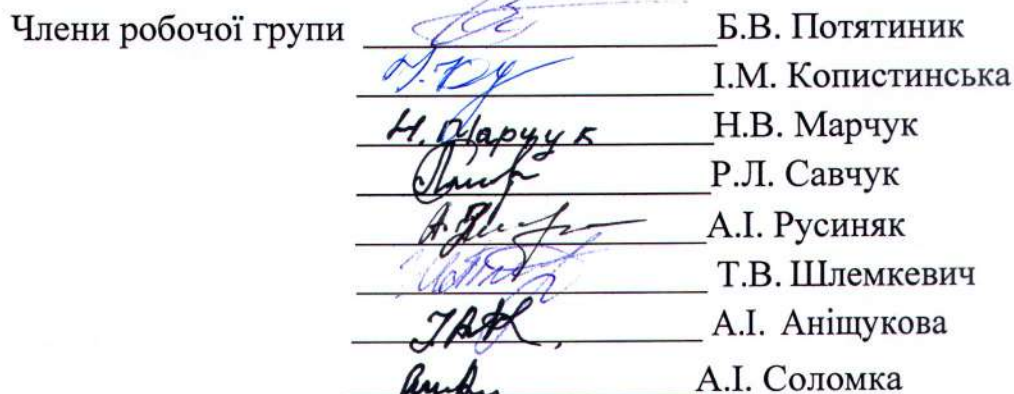 Члени робочої групи Б.В. Потятиник
І.М. Копистинська
Н. Марчук Н.В. Марчук
Р.Л. Савчук
А.І. Русиняк
Т.В. Шлемкевич
А.І. Аніщукова
А.І. Соломка